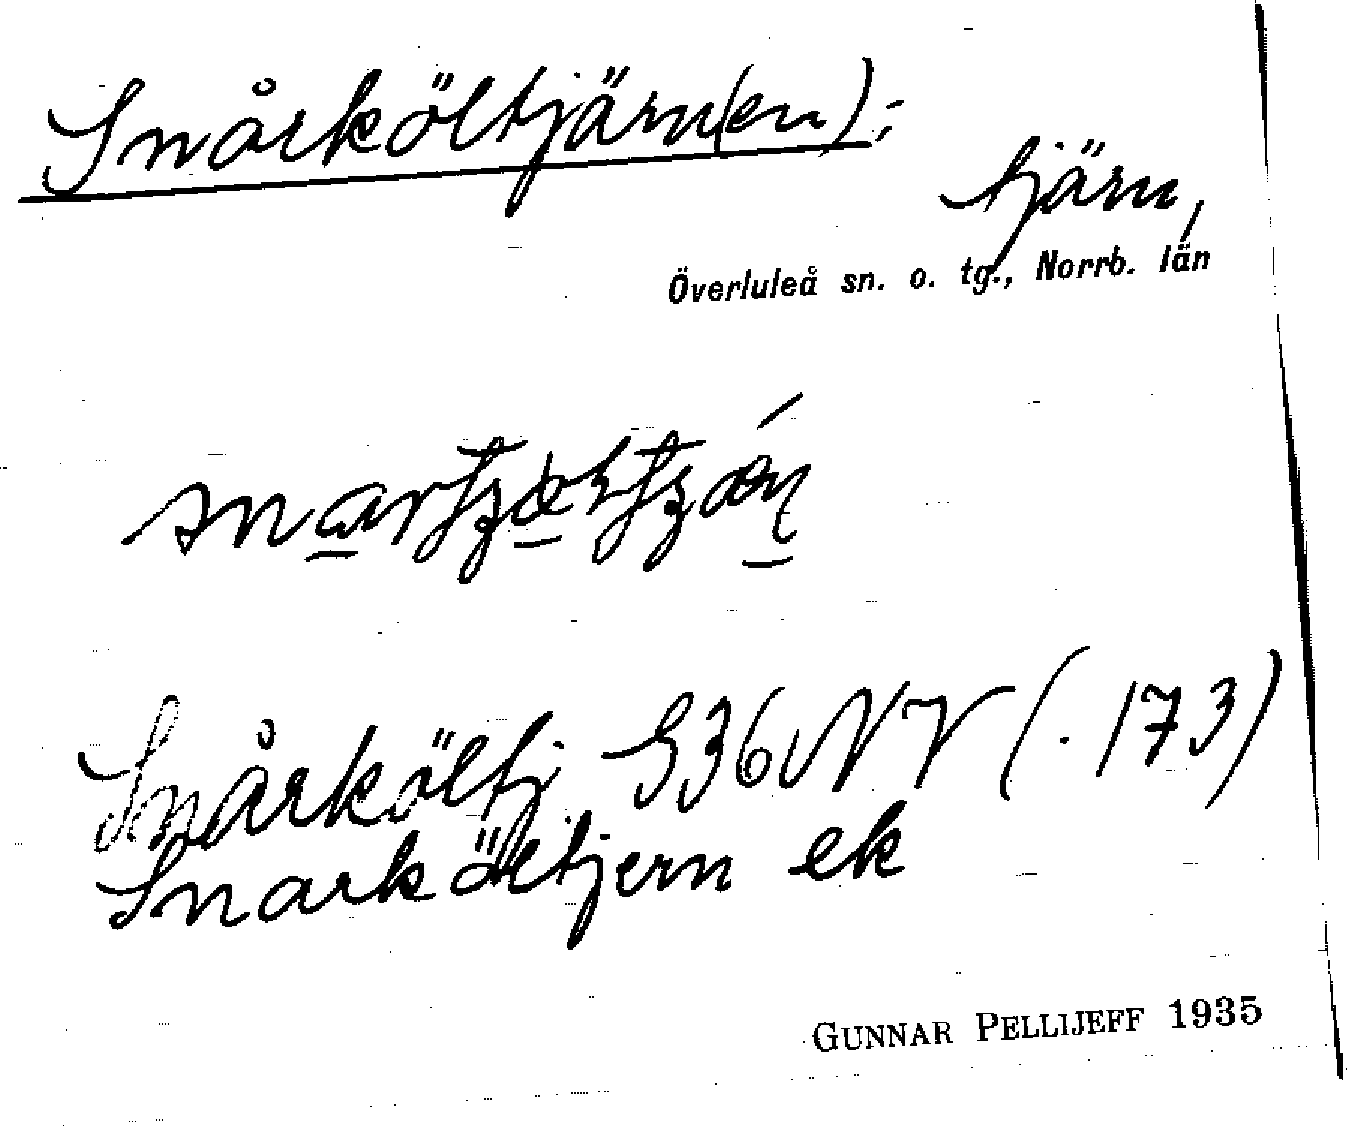 Snårköltjärn(en):
tjärn,
Överluleå sn. o. tg., Norrb. län
Snårköltj S36NV (. 173)
Snarköltjern ek
GUNNAR PELLIJEFF 1935